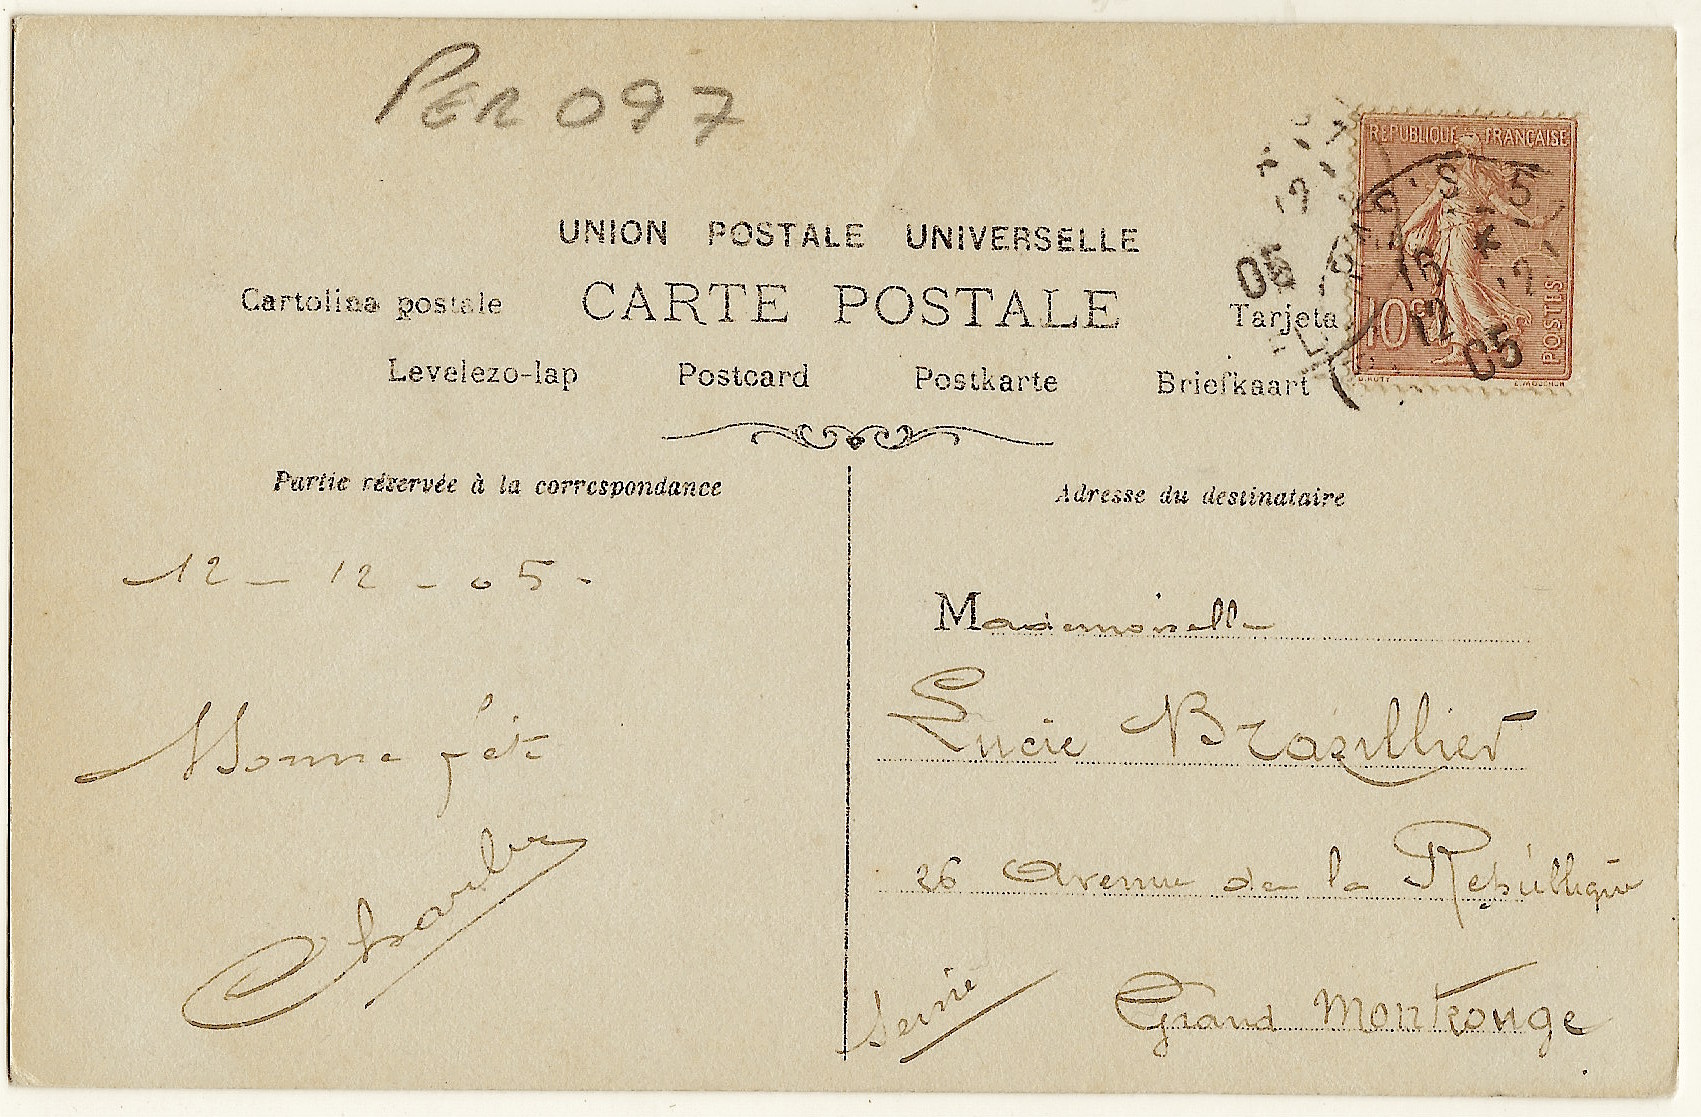 PER 097
RÉPUBLIQUE FRANÇAISE
10c
POSTES
UNION POSTALE UNIVERSELLE
Cartolina postale CARTE POSTALE Tarjeta
Levelezo-lap Postcard Postkarte Briefkaart
05
16
12
05
Partie réservée à la correspondance
12 - 12 - 05 -
Bonne fête
Charles
Adresse du destinataire
Mademoiselle
Lucie
26 Avenue de la République
Grand Montrouge
Seine